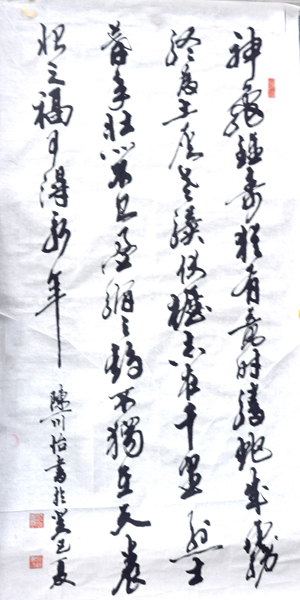 神龜雖壽猶有竟時騰蛇乘霧
終為土灰老驥伏櫪志在千里烈士
暮年壯心不已盈縮之期不獨在天養
怡之福可得永年
陳川怡書於癸巳夏